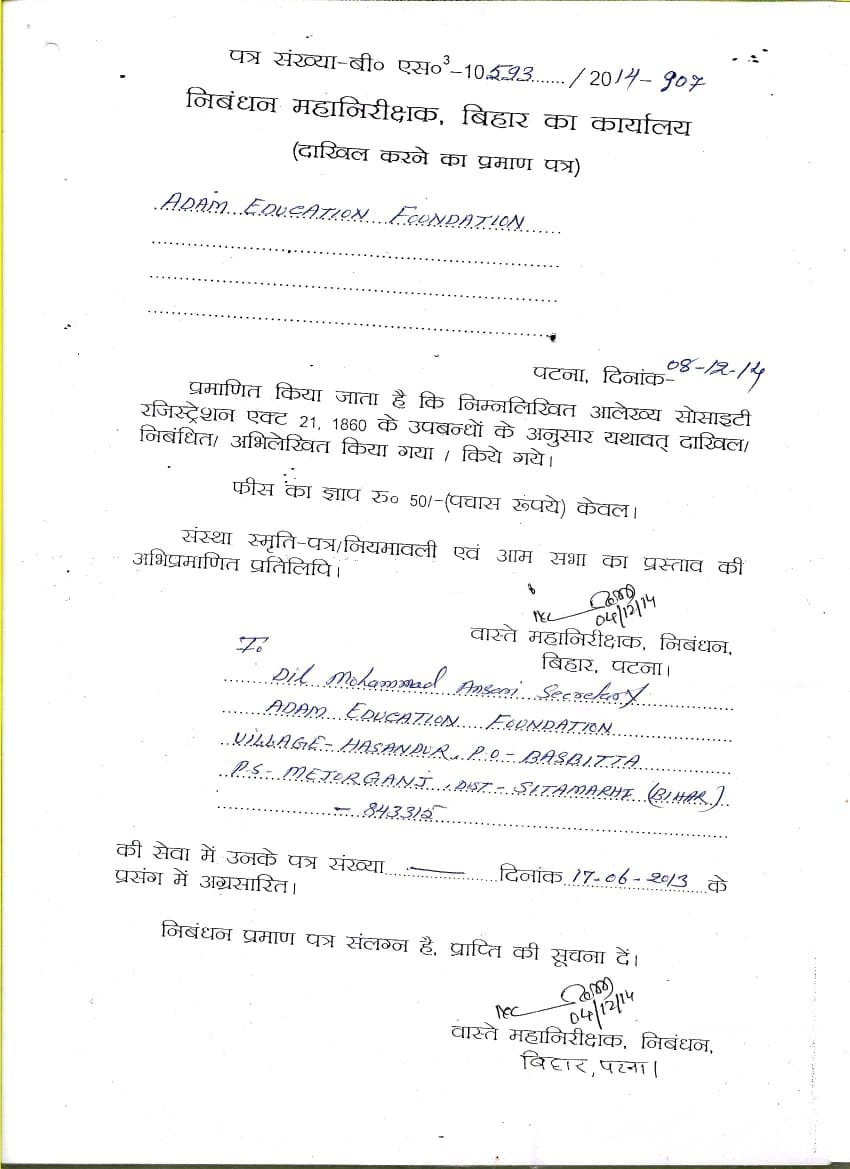 पत्र संख्या-बी० एस०³-10593......./2014-907
निबंधन महानिरीक्षक, बिहार का कार्यालय
(दाखिल करने का प्रमाण पत्र)
ADAM EDUCATION FOUNDATION
पटना, दिनांक-08-12-14
प्रमाणित किया जाता है कि निम्नलिखित आलेख्य सोसाइटी
रजिस्ट्रेशन एक्ट 21, 1860 के उपबन्धों के अनुसार यथावत् दाखिल/
निबंधित/ अभिलेखित किया गया / किये गये।
फीस का ज्ञाप रु० 50/-(पचास रूपये) केवल।
संस्था स्मृति-पत्र/नियमावली एवं आम सभा का प्रस्ताव की
अभिप्रमाणित प्रतिलिपि।
04/12/14
वास्ते महानिरीक्षक, निबंधन,
बिहार, पटना।
To
Dil Mohammad Ansari Secretary
ADAM EDUCATION FOUNDATION
VILLAGE-HASANPUR, P.O-BASBITTA
P.S-MEJORGANJ, DIST-SITAMARHI (BIHAR)
- 843315
की सेवा में उनके पत्र संख्या............ दिनांक 17-06-2013 के
प्रसंग में अग्रसारित।
निबंधन प्रमाण पत्र संलग्न है, प्राप्ति की सूचना दें।
04/12/14
वास्ते महानिरीक्षक, निबंधन,
बिहार, पटना।